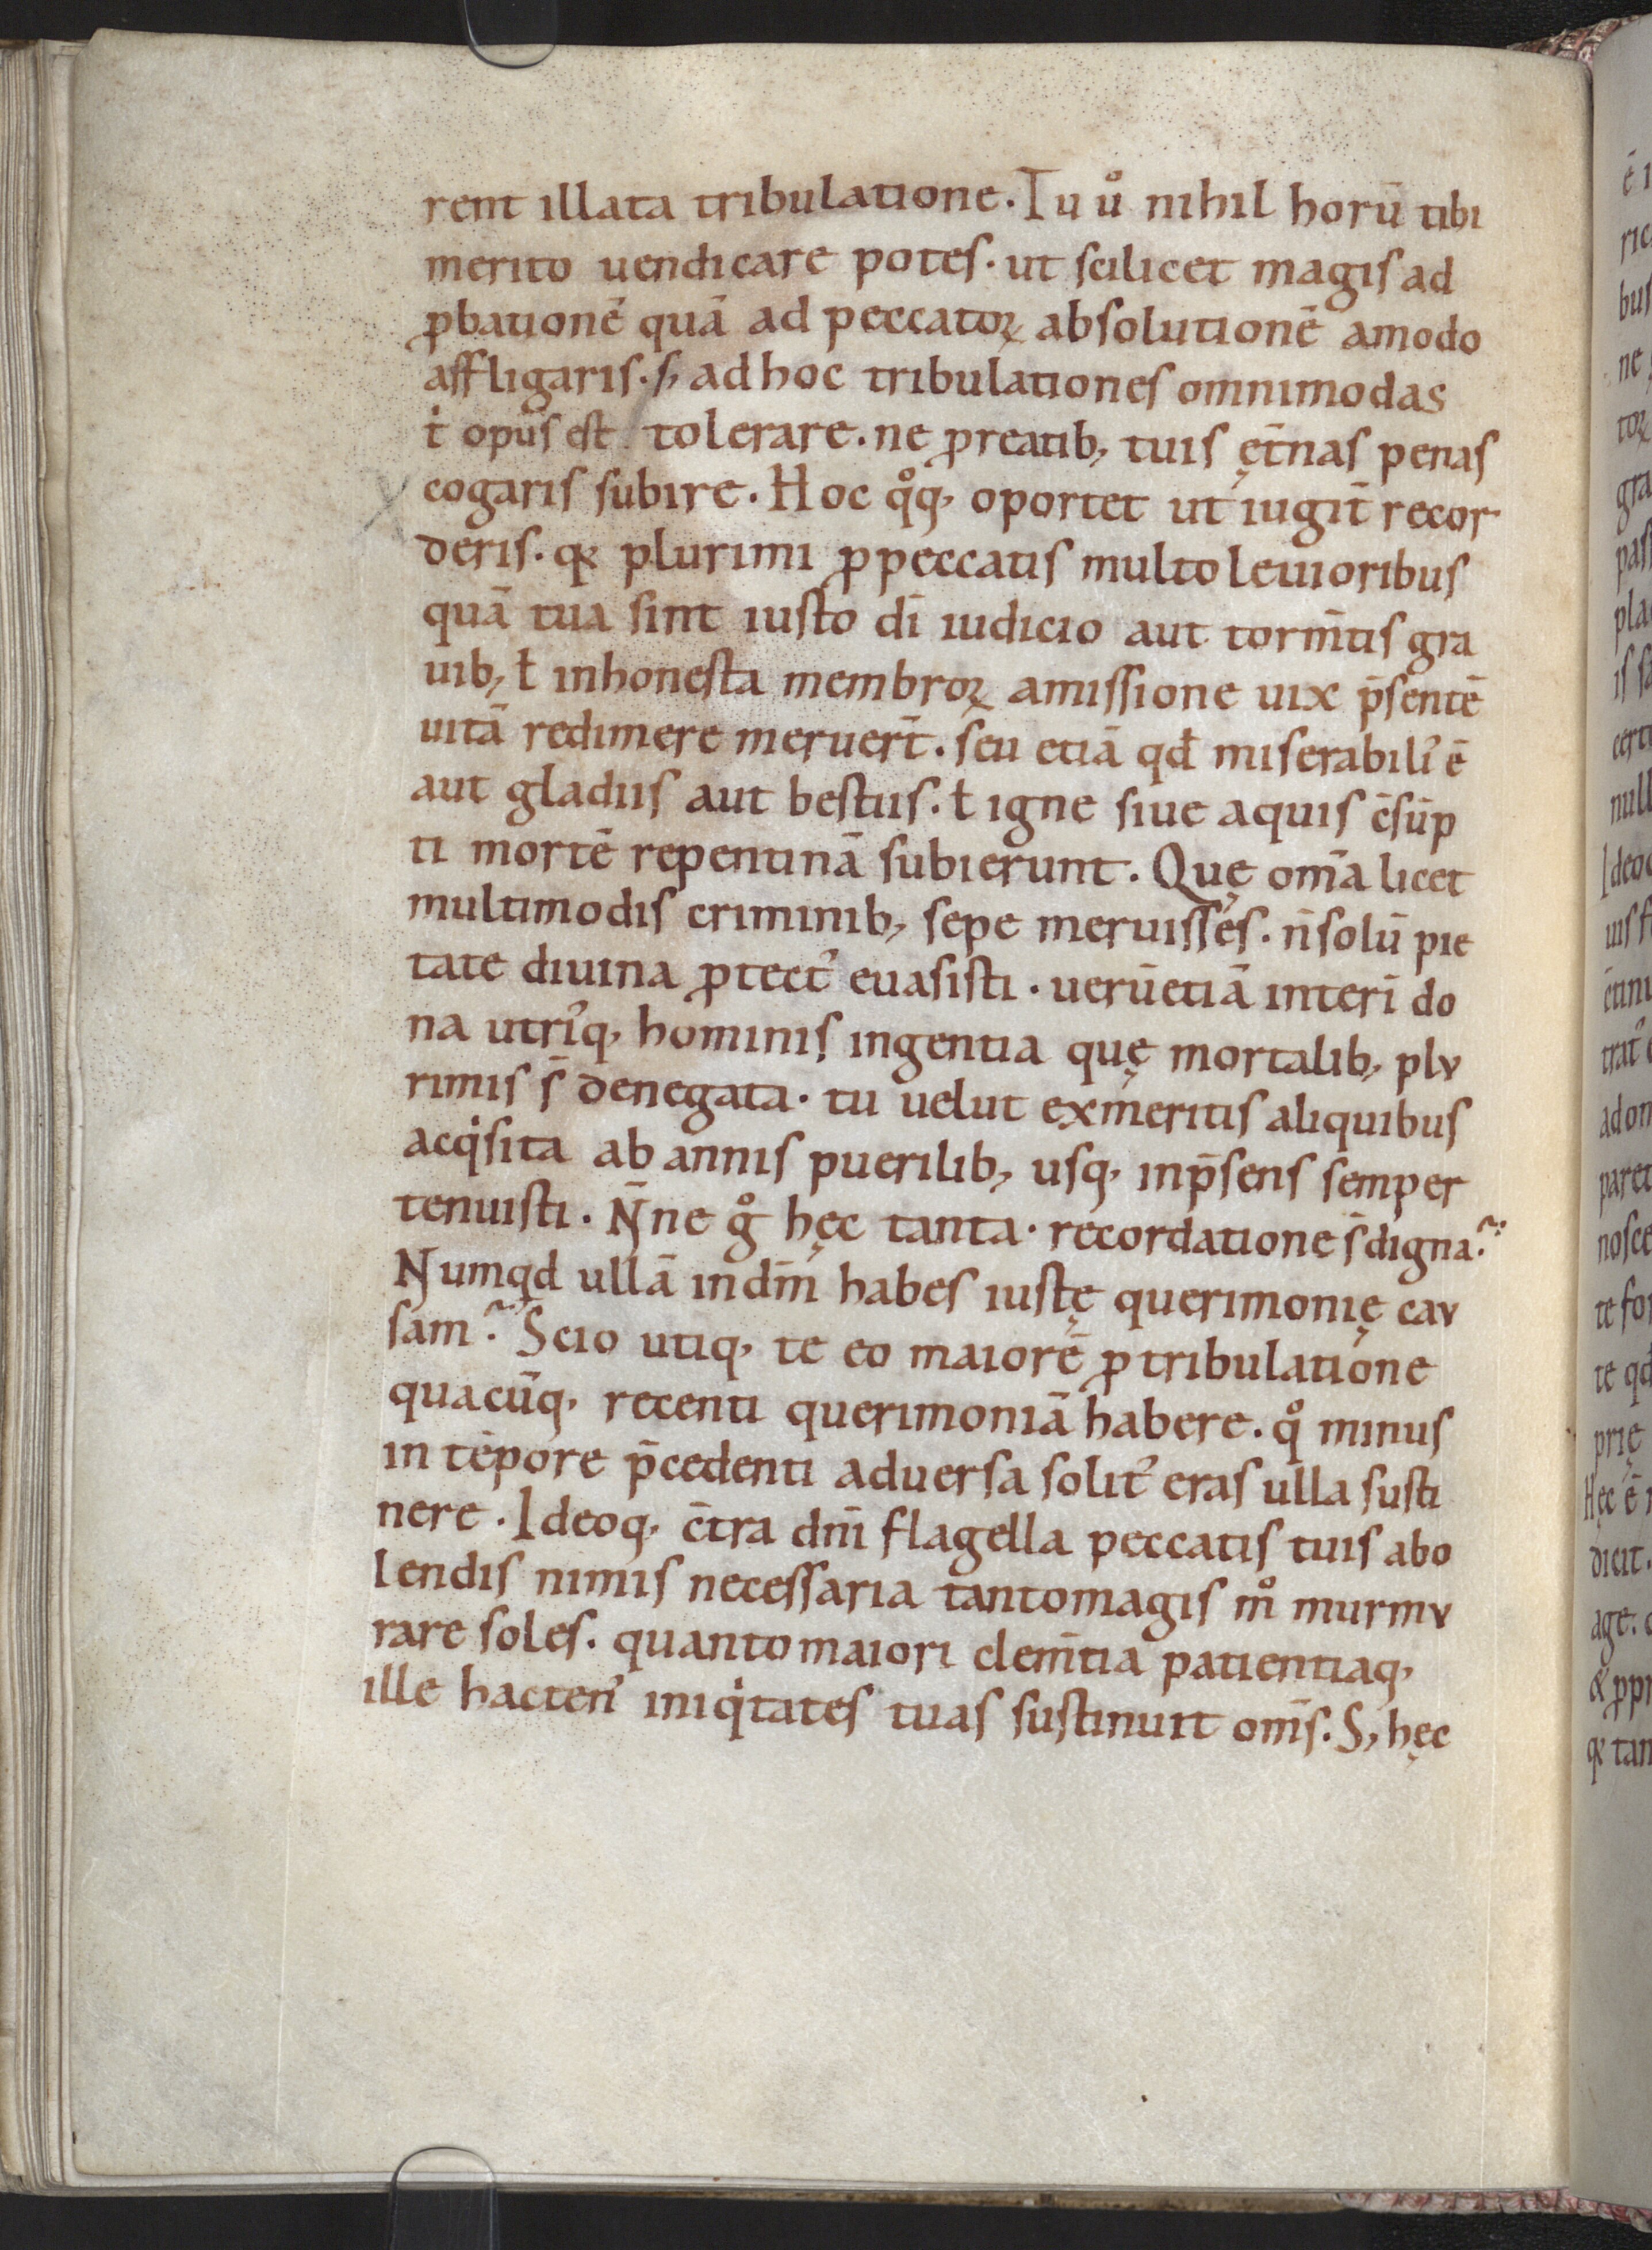 rent illata tribulatione. Tu uͦ nihil horū tibi
merito uendicare potes. ut scilicet magis ad
ꝓbationē quā ad peccatoꝝ absolutionē amodo
affligaris. s; ad hoc tribulationes omnimodas
t̓ opus est tolerare. ne ꝓ reatib; tuis ęt̄nas penas
cogaris subire. Hoc qͦq; oportet ut iugit̄ recor
deris. qꝛ plurimi ꝓ peccatis multo leuioribus
quā tua sint iusto dī iudicio aut torm̄tis gra
uib; ł inhonesta membroꝝ amissione uix p̄sentē
uitā redimere meruer̄t. seu etiā qđ miserabiliꝰ ē
aut gladiis aut bestiis. ł igne siue aquis c̄sūp
ti mortē repentinā subierunt. Quę om̄a licet
multimodis criminib; sepe meruisses. n̄ solū pie
tate diuina ꝓtectꝰ euasisti. uerūetiā interī do
na utriꝰq; hominis ingentia quę mortalib; plu
rimis s̄ denegata. tu uelut ex meritis aliquibus
acqͥsita ab annis puerilib; usq; in p̄sens semper
tenuisti. N̄ne gͦ hęc tanta. recordatione s̄ digna?
Numqd ullā in dm̄ habes iustę querimonię cau
sam? Scio utiq; te eo maiorē ꝓ tribulatione
quacūq; recenti querimoniā habere. qͦ minus
in tēpore p̄cedenti aduersa solitꝰ eras ulla susti
nere. Ideoq; c̄tra dm̄ flagella peccatis tuis abo
lendis nimis necessaria tanto magis mͦ murmu
rare soles. quanto maiori clem̄tia patientiaq;
ille hactenꝰ iniqͥtates tuas sustinuit om̄s. S; hęc